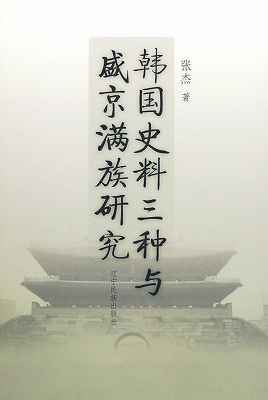 韩国史料三种与
盛京满族研究
张杰 著
辽宁民族出版社